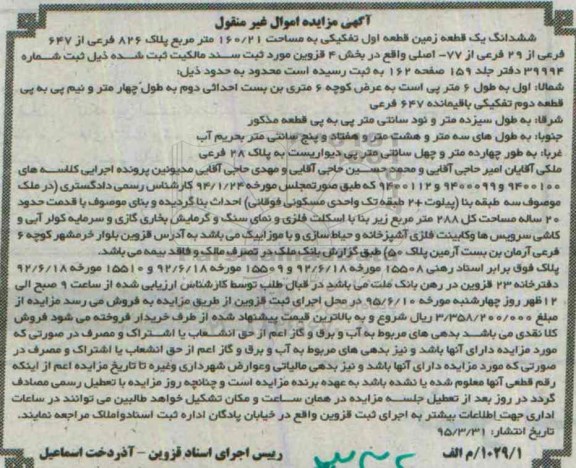 آگهی مزایده اموال غیر منقول
ششدانگ یک قطعه زمین قطعه اول تفکیکی به مساحت ۱۶۰/۲۱ متر مربع پلاک ۸۲۶ فرعی از ۶۴۷
فرعی از ۲۹ فرعی از ۷۷- اصلی واقع در بخش ۴ قزوین مورد ثبت سند مالکیت ثبت شده ذیل ثبت شماره
۳۹۹۹۴ دفتر جلد ۱۵۹ صفحه ۱۶۲ به ثبت رسیده است محدود به حدود ذیل:
شمالا: اول به طول ۶ متر پی است به عرض کوچه ۶ متری بن بست احداثی دوم به طول چهار متر و نیم پی به پی
قطعه دوم تفکیکی باقیمانده ۶۴۷ فرعی
شرقا: به طول سیزده متر و نود سانتی متر پی به پی قطعه مذکور
جنوبا: به طول های سه متر و هشت متر و هفتاد و پنج سانتی متر بحریم آب
غربا: به طور چهارده متر و چهل سانتی متر پی دیواریست به پلاک ۲۸ فرعی
ملکی آقایان امیر حاجی آقایی و محمدحسین حاجی آقایی و مهدی حاجی آقایی مدیونین پرونده اجرایی کلاسه های
۹۴۰۰۱۰۰ و ۹۴۰۰۰۹۹ و ۹۴۰۰۱۱۲ که طبق صورتمجلس مورخه ۹۴/۱/۲۴ کارشناس رسمی دادگستری (در ملک
موصوف سه طبقه بنا (پیلوت+۲ طبقه تک واحدی مسکونی فوقانی) احداث بنا گردیده و بنای موصوف با قدمت حدود
۲۰ ساله مساحت کل ۲۸۸ متر مربع زیر بنا با اسکلت فلزی و نمای سنگ و گرمایش بخاری گازی و سرمایه کولر آبی و
کاشی سرویس ها وکابینت فلزی آشپزخانه و حیاط سازی و با موزاییک می باشد به آدرس قزوین بلوار خرمشهر کوچه ۶
فرعی آرمان بن بست آرمین پلاک ۵۰) طبق گزارش بانک ملک در تصرف مالک و فاقد بیمه می باشد.
پلاک فوق برابر اسناد رهنی ۱۵۵۰۸ مورخه ۹۲/۶/۱۸ و ۱۵۵۰۹ مورخه ۹۲/۶/۱۸ و ۱۵۵۱۰ مورخه ۹۲/۶/۱۸
دفترخانه ۲۳ قزوین در رهن بانک ملت می باشد در قبال طلب توسط کارشناس ارزیابی شده از ساعت ۹ صبح الی
۱۲ ظهر روز چهارشنبه مورخه ۹۵/۶/۱۰ در محل اجرای ثبت قزوین از طریق مزایده به فروش می رسد مزایده از
مبلغ ۳/۳۵۸/۲۰۰/۰۰۰ ریال شروع و به بالاترین قیمت پیشنهاد شده از طرف خریدار فروخته می شود فروش
کلا نقدی می باشد بدهی های مربوط به آب و برق و گاز اعم از حق انشعاب یا اشتراک و مصرف در صورتی که
مورد مزایده دارای آنها باشد و نیز بدهی های مربوط به آب و برق و گاز اعم از حق انشعاب یا اشتراک و مصرف در
صورتی که مورد مزایده دارای آنها باشد و نیز بدهی مالیاتی وعوارض شهرداری وغیره تا تاریخ مزایده اعم از اینکه
رقم قطعی آنها معلوم شده یا نشده باشد به عهده برنده مزایده است و چنانچه روز مزایده با تعطیل رسمی مصادف
گردد در روز بعد از تعطیل جلسه مزایده در همان ساعت و مکان تشکیل خواهد طالبین می توانند در ساعات
اداری جهت اطلاعات بیشتر به اجرای ثبت قزوین واقع در خیابان پادگان اداره ثبت اسنادواملاک مراجعه نمایند.
تاریخ انتشار: ۹۵/۳/۳۱
رییس اجرای اسناد قزوین - آذردخت اسماعیل
۱۰۲۹/۱/م الف